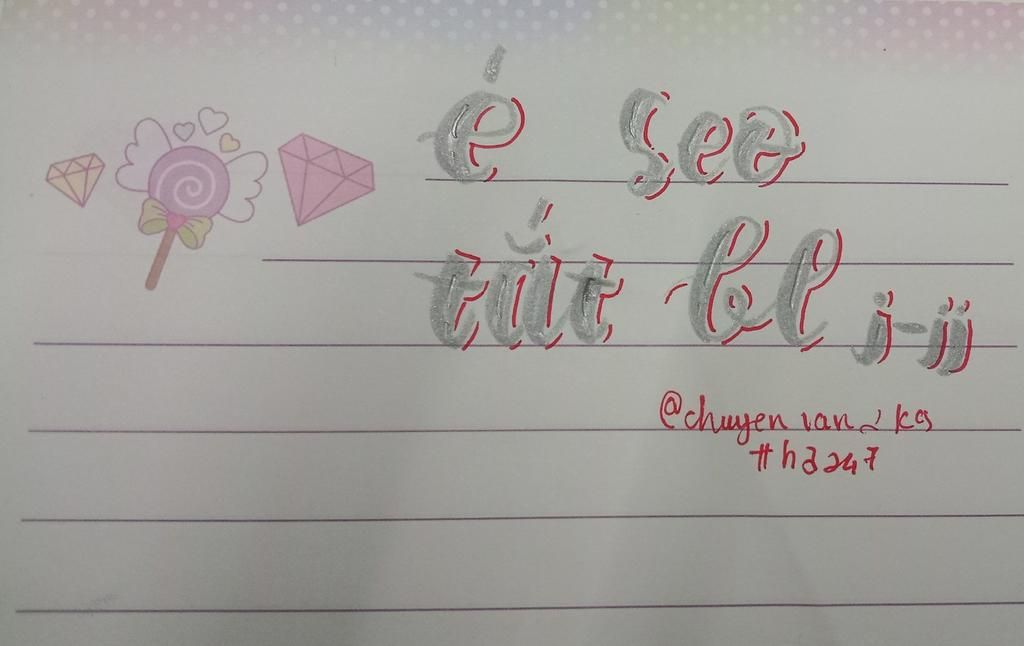 é seo
tắt bl j-jj
@chuyen van 2 k9
#h3247